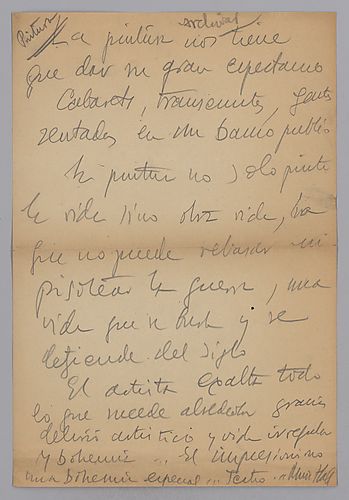 Pintura
archivar
La pintura nos tiene
que dar su gran espectaculo
Cabarets, transeuntes, gentes
sentadas en un banco publico
La pintura no solo pinta
la vida sino otra vida, la
que no puede rebasar ni
pisotear la guerra, una
vida que se burla y se
defiende del siglo
El artista exalta todo
lo que sucede alrededor gracias
delirio artistico y vida irregular
y bohemia ... El impresionismo
una bohemia especial ...